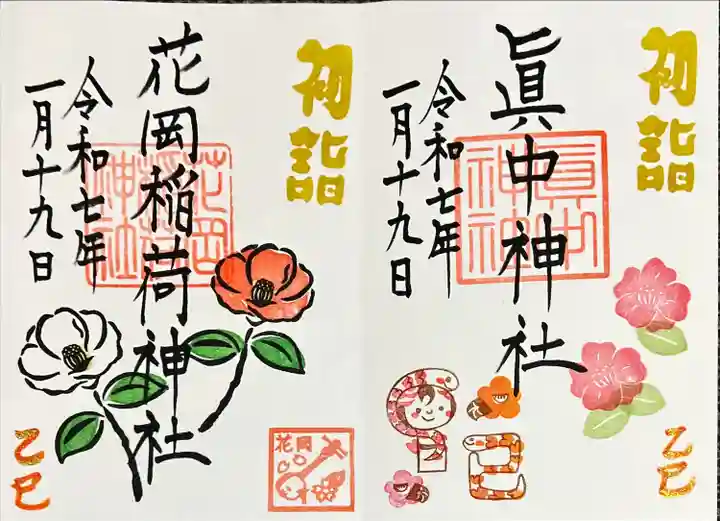 初詣
眞中神社
眞中神社
令和七年
一月十九日
乙巳
巳
初詣
花岡稲荷神社
令和七年
一月十九日
乙巳
花岡